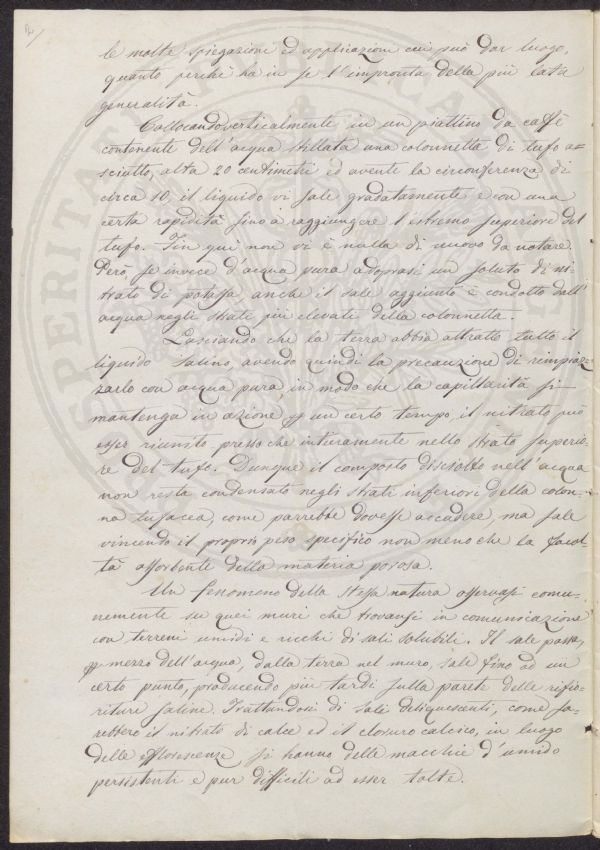 le molte spiegazioni ed applicazioni cui può dar luogo,
quanto perchè ha in se l'impronta della più lata
generalità.
Collocando verticalmente in un piattino da caffè
contenente dell'acqua stillata una colonnetta di tufo a=
sciutto, alta 20 centimetri ed avente la circonferenza di
circa 10, il liquido vi sale gradatamente e con una
certa rapidità fino a raggiungere l'estremo superiore del
tufo. Fin qui non vi è nulla di nuovo da notare.
Però se invece d'acqua pura adoprasi un soluto di ni=
trato di potassa, anche il sale aggiunto è condotto dall'
acqua negli strati più elevati della colonnetta.
Lasciando che la terra abbia attratto tutto il
liquido salino, avendo quindi la precauzione di rimpiaz=
zarlo con acqua pura, in modo che la capillarità si
mantenga in azione p un certo tempo, il nitrato può
esser riunito presso che intieramente nello strato superio=
re del tufo. Dunque il composto disciolto nell'acqua
non resta condensato negli strati inferiori della colon=
na tufacea, come parrebbe dovesse accadere, ma sale
vincendo il proprio peso specifico non meno che la facol=
tà assorbente della materia porosa.
Un fenomeno della stessa natura osservasi comu=
nemente su quei muri che trovansi in comunicazione
con terreni umidi e ricchi di sali solubili. Il sale passa,
p mezzo dell'acqua, dalla terra nel muro, sale fino ad un
certo punto, producendo più tardi sulla parete delle rifio=
riture saline. Trattandosi di sali deliquescenti, come sa=
rebbero il nitrato di calce ed il cloruro calcico, in luogo
delle efflorescenze si hanno delle macchie d'umido
persistenti e pur difficili ad esser tolte.
PERITATE PUBLICA